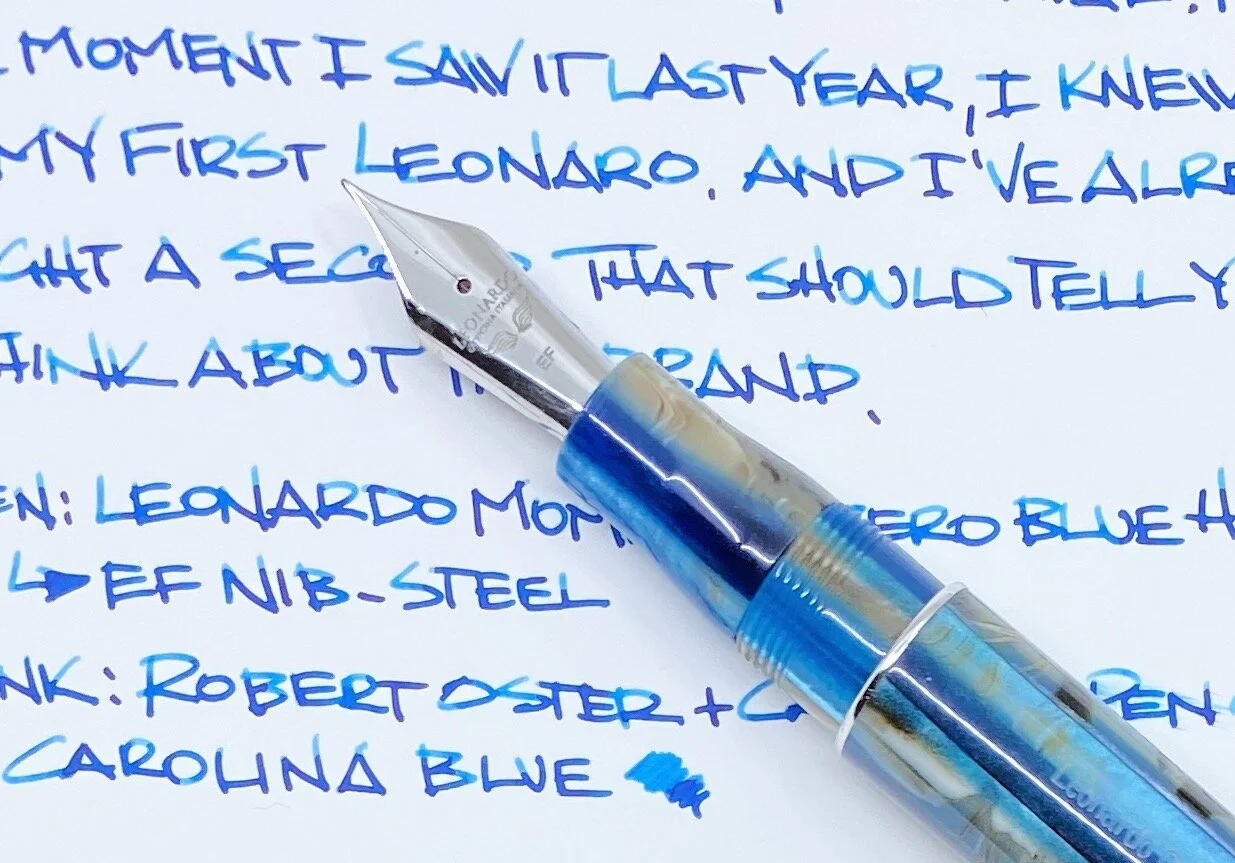 MOMENT I SAW IT LAST YEAR, I KNEW
MY FIRST LEONARO. AND I'VE ALRE
GHT A SECO THAT SHOULD TELL Y
HINK ABOUT BRAND.
EN: LEONARDO MOM ZERO BLUE H
EF NIB - STEEL
NK: ROBERT OSTER + PEN
CAROLINA BLUE
LEONARDO
EF
Leonardo